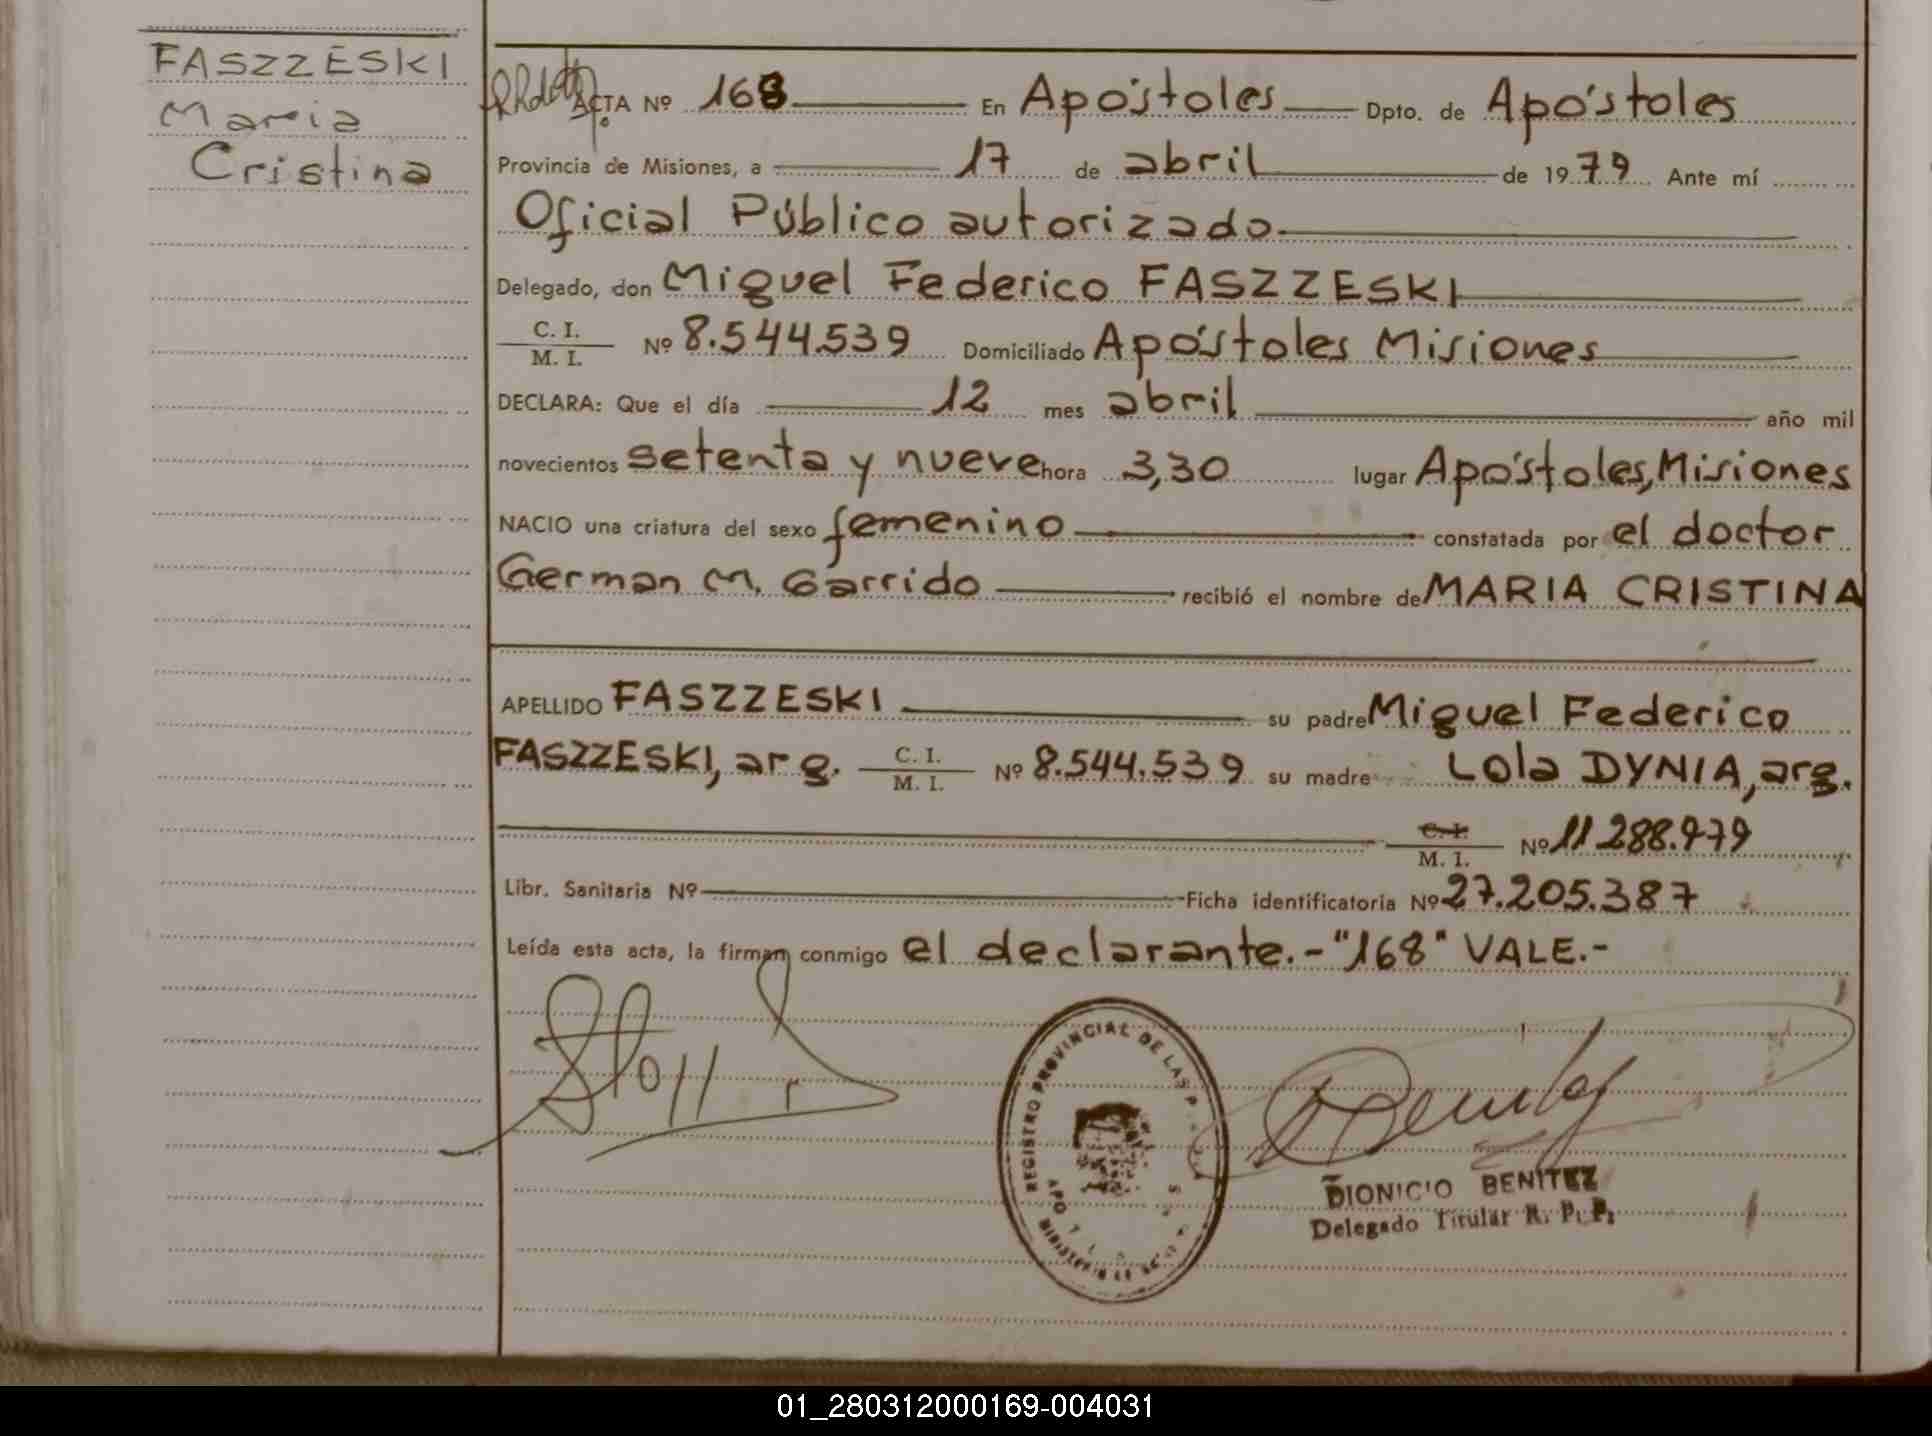 FASZZESKI
Maria
Cristina
ACTA Nº 168 En Apóstoles Dpto. de Apóstoles
Provincia de Misiones, a 17 de abril de 1979 Ante mí
Oficial Público autorizado.
Delegado, don Miguel Federico FASZZESKI
C. I.
M. I. Nº 8.544.539 Domiciliado Apóstoles Misiones
DECLARA: Que el día 12 mes abril año mil
novecientos setenta y nueve hora 3,30 lugar Apóstoles, Misiones
NACIO una criatura del sexo femenino constatada por el doctor
German M. Garrido recibió el nombre de MARIA CRISTINA
APELLIDO FASZZESKI su padre Miguel Federico
FASZZESKI, arg. C. I. M. I. Nº 8.544.539 su madre Lola DYNIA, arg.
C. I. M. I. Nº 11.288.979
Libr. Sanitaria Nº Ficha identificatoria Nº 27.205.387
Leída esta acta, la firman conmigo el declarante.-"168" VALE.-
REGISTRO PROVINCIAL DE LAS P
DIONICIO BENITEZ
Delegado Titular R. P. P.
01_280312000169-004031